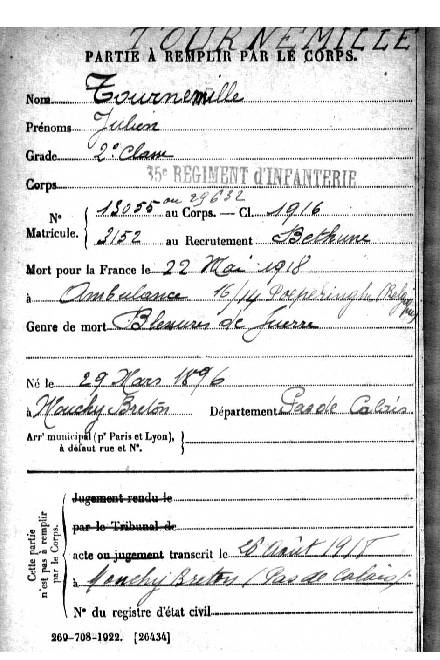 TOURNEMILLE
PARTIE À REMPLIR PAR LE CORPS.
Nom Tournemille
Prénoms Julien
Grade 2e Classe
Corps 35e REGIMENT d'INFANTERIE
ou 29632
N° Matricule. { 13055 au Corps. — Cl. 1916
3152 au Recrutement Bethune
Mort pour la France le 22 Mai 1918
à Ambulance 16/14 Poperinghe (Belgique)
Genre de mort Blessures de Guerre
Né le 29 Mars 1896
à Monchy Breton Département Pas de Calais
Arrt municipal (pr Paris et Lyon), }
à défaut rue et N°.
Cette partie n'est pas à remplir par le Corps. {
Jugement rendu le
par le Tribunal de
acte ou jugement transcrit le 26 Août 1918
à Monchy Breton (Pas de Calais)
N° du registre d'état civil
269-708-1922. [26434]